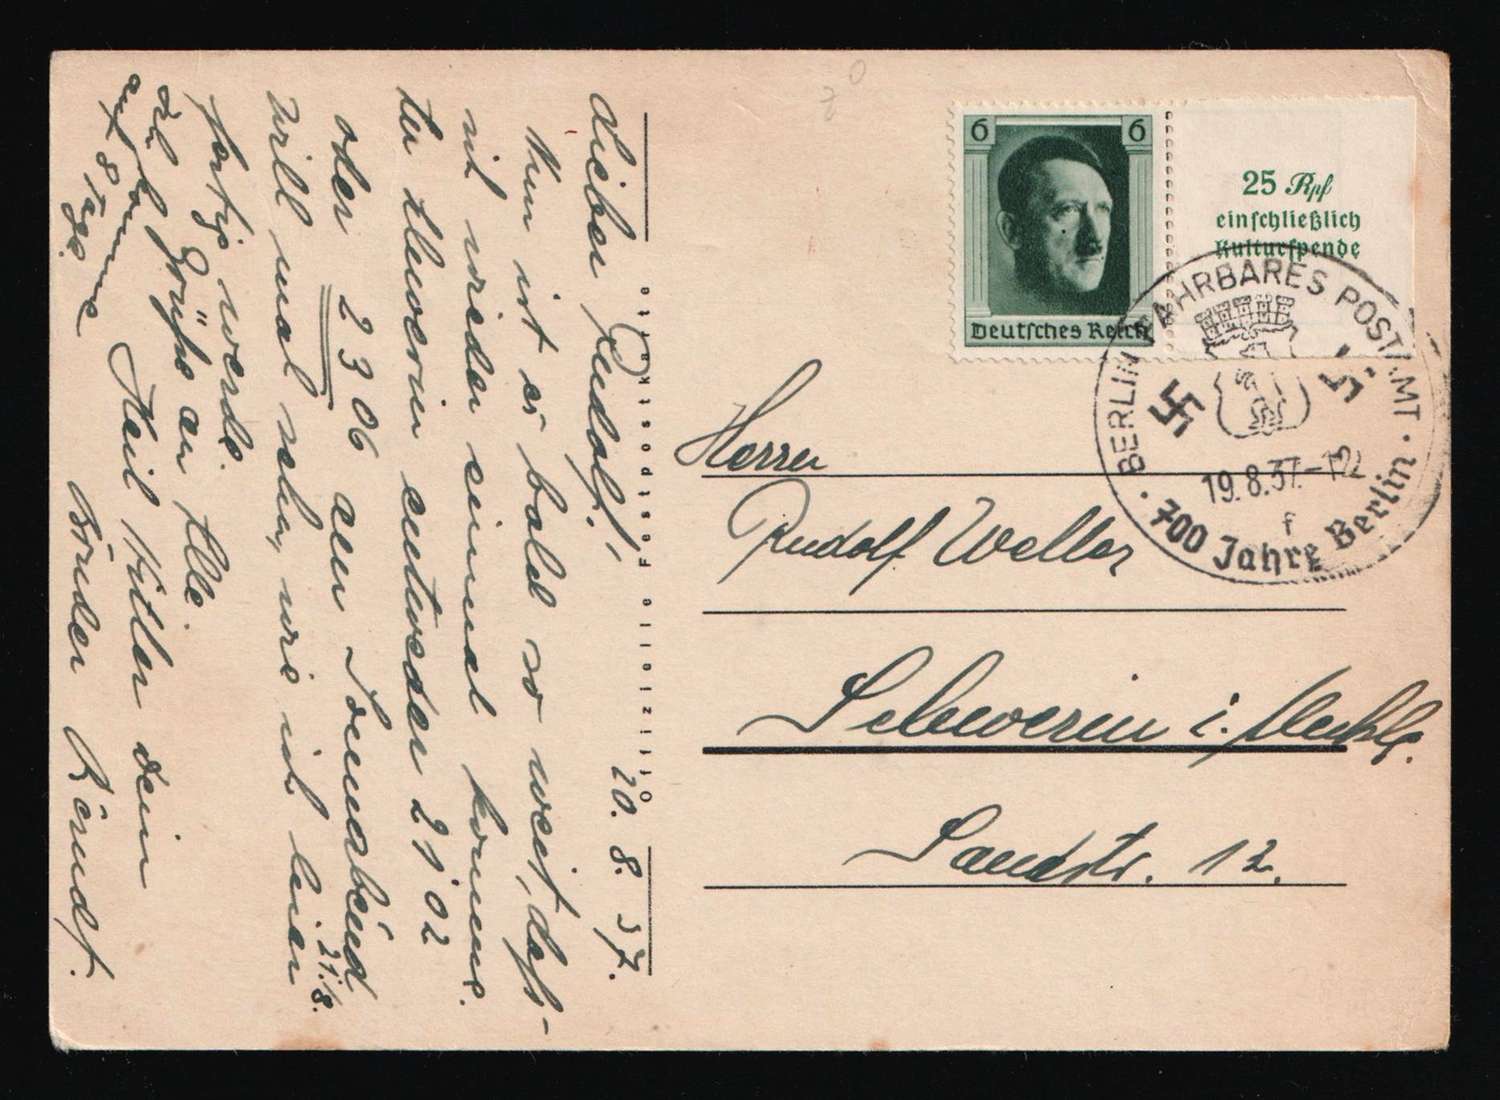 20. 8. 37.
Lieber Rudolf!
Nun ist es bald so weit, daß
ich wieder einmal komme.
Schwerin entweder 21 02
oder 23 06 am Sonnabend
21./8.
will mal sehn, wie ich hier
fertig werde.
Viel Grüße an Alle.
Heil Hitler dein
Bruder
auf 8 Tage.
Offizielle Festpostkarte
6 6
Deutsches Reich
25 Rpf
einschließlich
Kulturspende
BERLIN FAHRBARES POSTAMT
19.8.37.-12
f
700 Jahre Berlin
Herrn
Rudolf Weller
Schwerin i. Mecklb.
Sandstr. 12.